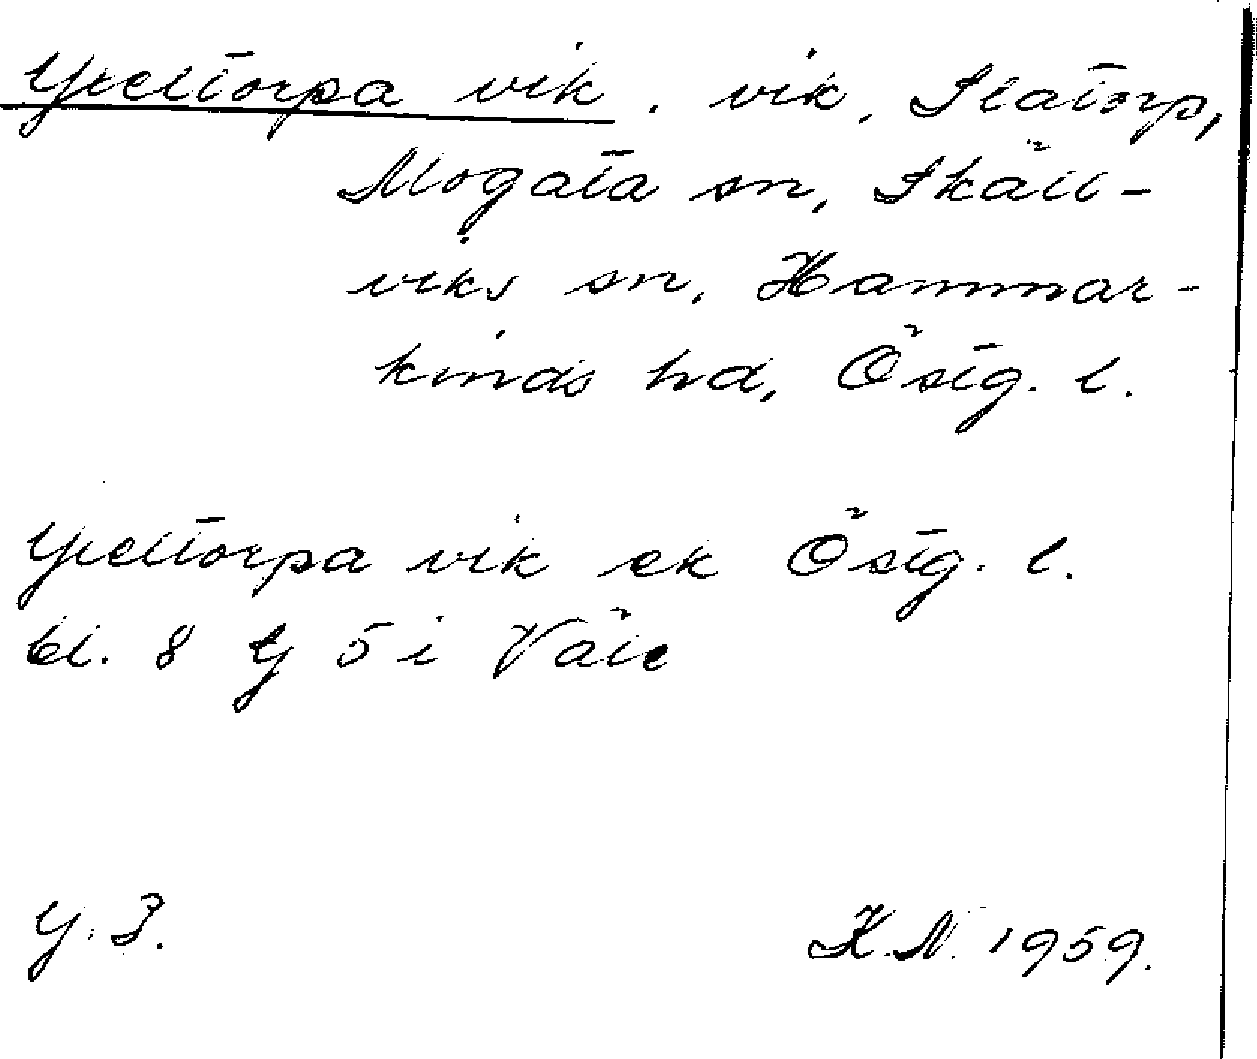 Yxeltorpa vik. vik, Slatorp,
Mogata sn, Skäll-
viks sn, Hammar-
kinds hd, Östg. l.
Yxeltorpa vik ek Östg. l.
bl. 8 Y 5 i
Y. 3.
K.N. 1959.